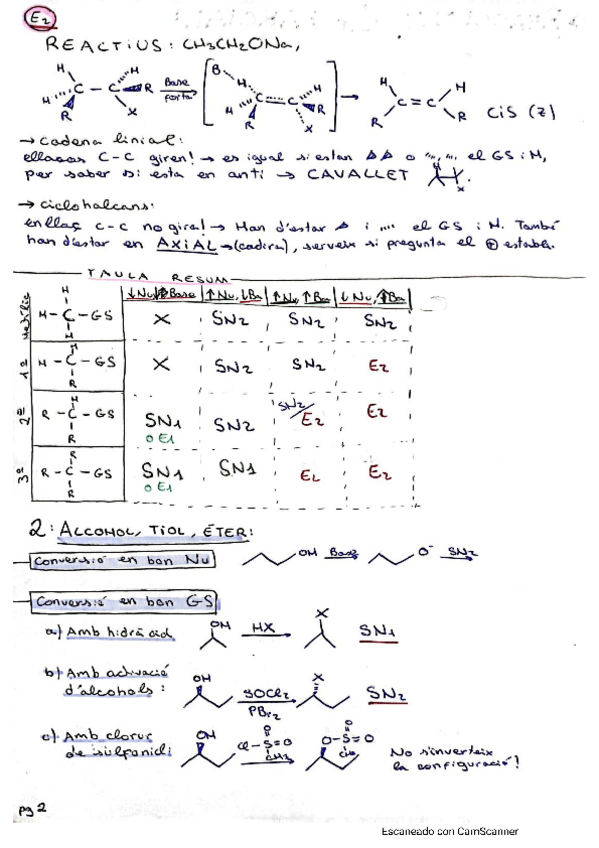 E2
REACTIUS: CH3CH2ONa,
H H C C R H R X Base forta B H H C C R R X H H C=C R R CiS (Z)
→ cadena linial:
ellaços C-C giren! → es igual si estan o el GS i H,
per saber si esta en anti → CAVALLET
→ ciclohalcans:
enllaç C-C no gira! → Han d'estar i el GS i H. També
han d'estar en AXIAL → (cadira), serveix si pregunta el + estable.
TAULA RESUM
↓Nu ↓Base ↑Nu, ↓Ba ↑Nu, ↑Ba ↓Nu, ↑Ba
H-C-GS H H X SN2 SN2 SN2
1ª H-C-GS H R X SN2 SN2 E2
2ª R-C-GS H R SN1 o E1 SN2 SN2/E2 E2
3ª R-C-GS R R SN1 o E1 SN1 E2 E2
2: ALCOHOL, TIOL, ÉTER:
Conversió en bon Nu OH Base O⁻ SN2
Conversió en bon GS
a) Amb hidràcid OH HX X SN1
b) Amb activació
d'alcohols: OH SOCl2 PBr2 X SN2
c) Amb clorur
de sulfonil: OH Cl-S=O O CH3 O-S=O O
No s'inverteix
la configuració!
pg 2
Escaneado con CamScanner